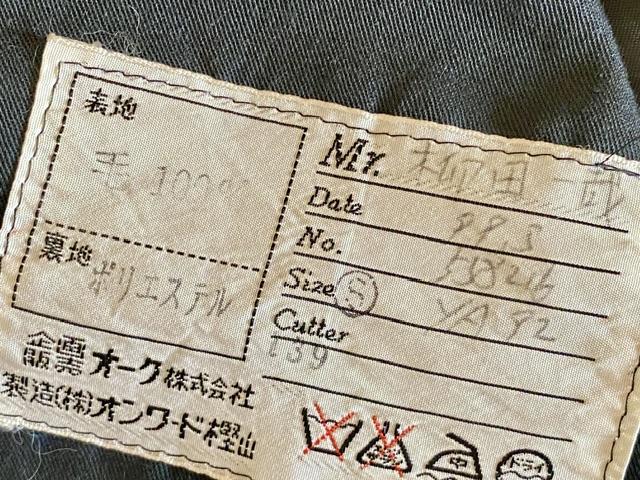 表地
毛 100%
裏地
ポリエステル
Mr. 柳田 一哉
Date
No.
Size S YA 92
Cutter
139
企画販売 オーク株式会社
製造(株)オンワード樫山
中
ドライ